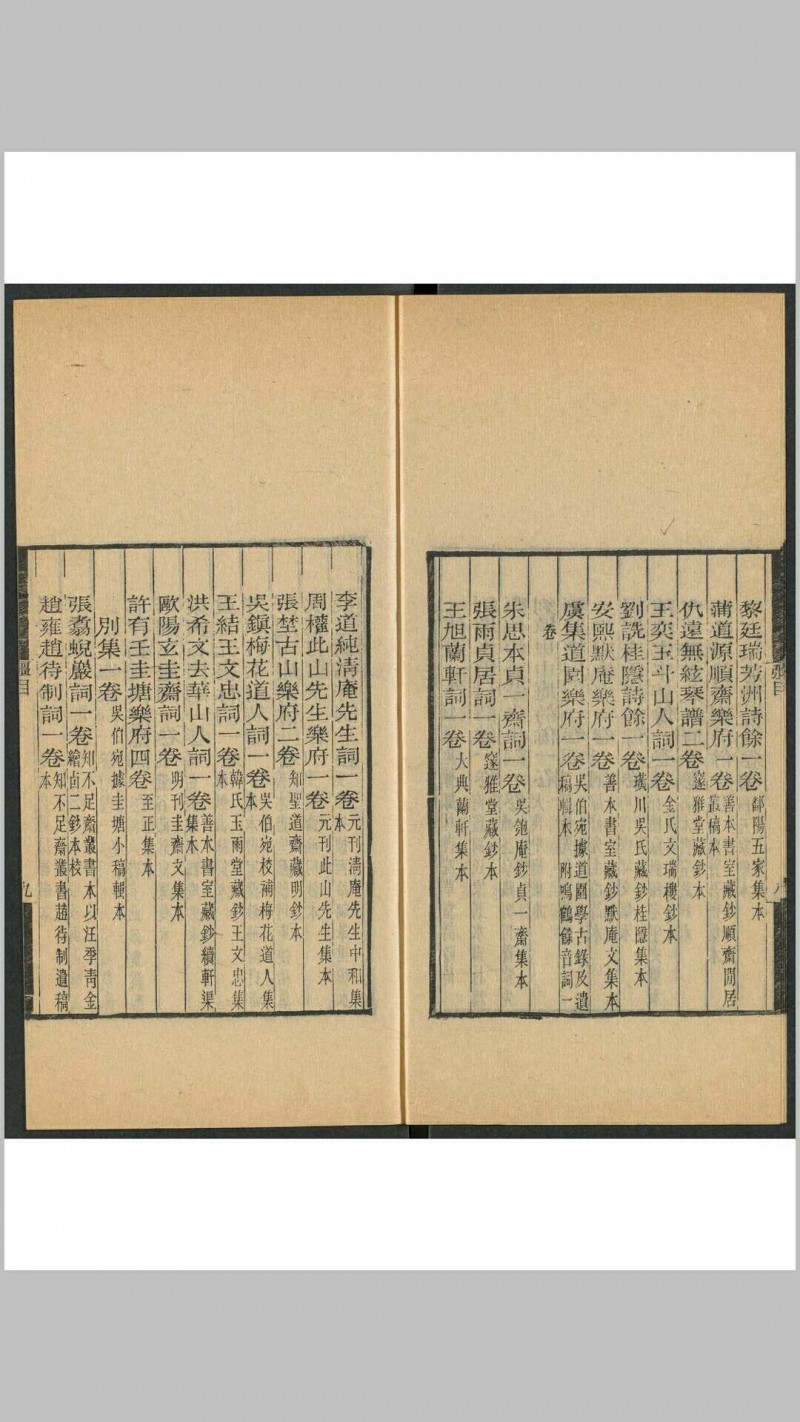 黎廷瑞芳洲詩餘一卷 鄱陽五家集本
蒲道源順齋樂府一卷 善本書室藏鈔順齋閒居叢稿本
仇遠無絃琴譜二卷 邃雅堂藏鈔本
王奕玉斗山人詞一卷 金氏文瑞樓鈔本
劉詵桂隱詩餘一卷 璜川吳氏藏鈔桂隱集本
安熙默庵樂府一卷 善本書室藏鈔默庵文集本
虞集道園樂府一卷 吳伯宛據道園學古錄及遺稿輯本 附鳴鶴餘音詞一
卷
朱思本貞一齋詞一卷 吳匏庵鈔貞一齋集本
張雨貞居詞一卷 邃雅堂藏鈔本
王旭蘭軒詞一卷 大典蘭軒集本
李道純清庵先生詞一卷 元刊清庵先生中和集本
周權此山先生樂府一卷 元刊此山先生集本
張埜古山樂府二卷 知聖道齋藏明鈔本
吳鎮梅花道人詞一卷 吳伯宛校補梅花道人集本
王結王文忠詞一卷 韓氏玉雨堂藏鈔王文忠集本
洪希文去華山人詞一卷 善本書室藏鈔續軒渠集本
歐陽玄圭齋詞一卷 明刊圭齋文集本
許有壬圭塘樂府四卷 至正集本
別集一卷 吳伯宛據圭塘小稿輯本
張翥蛻巖詞一卷 知不足齋叢書本以汪季青金繪卣二鈔本校
趙雍趙待制詞一卷 知不足齋叢書趙待制遺稿本
九